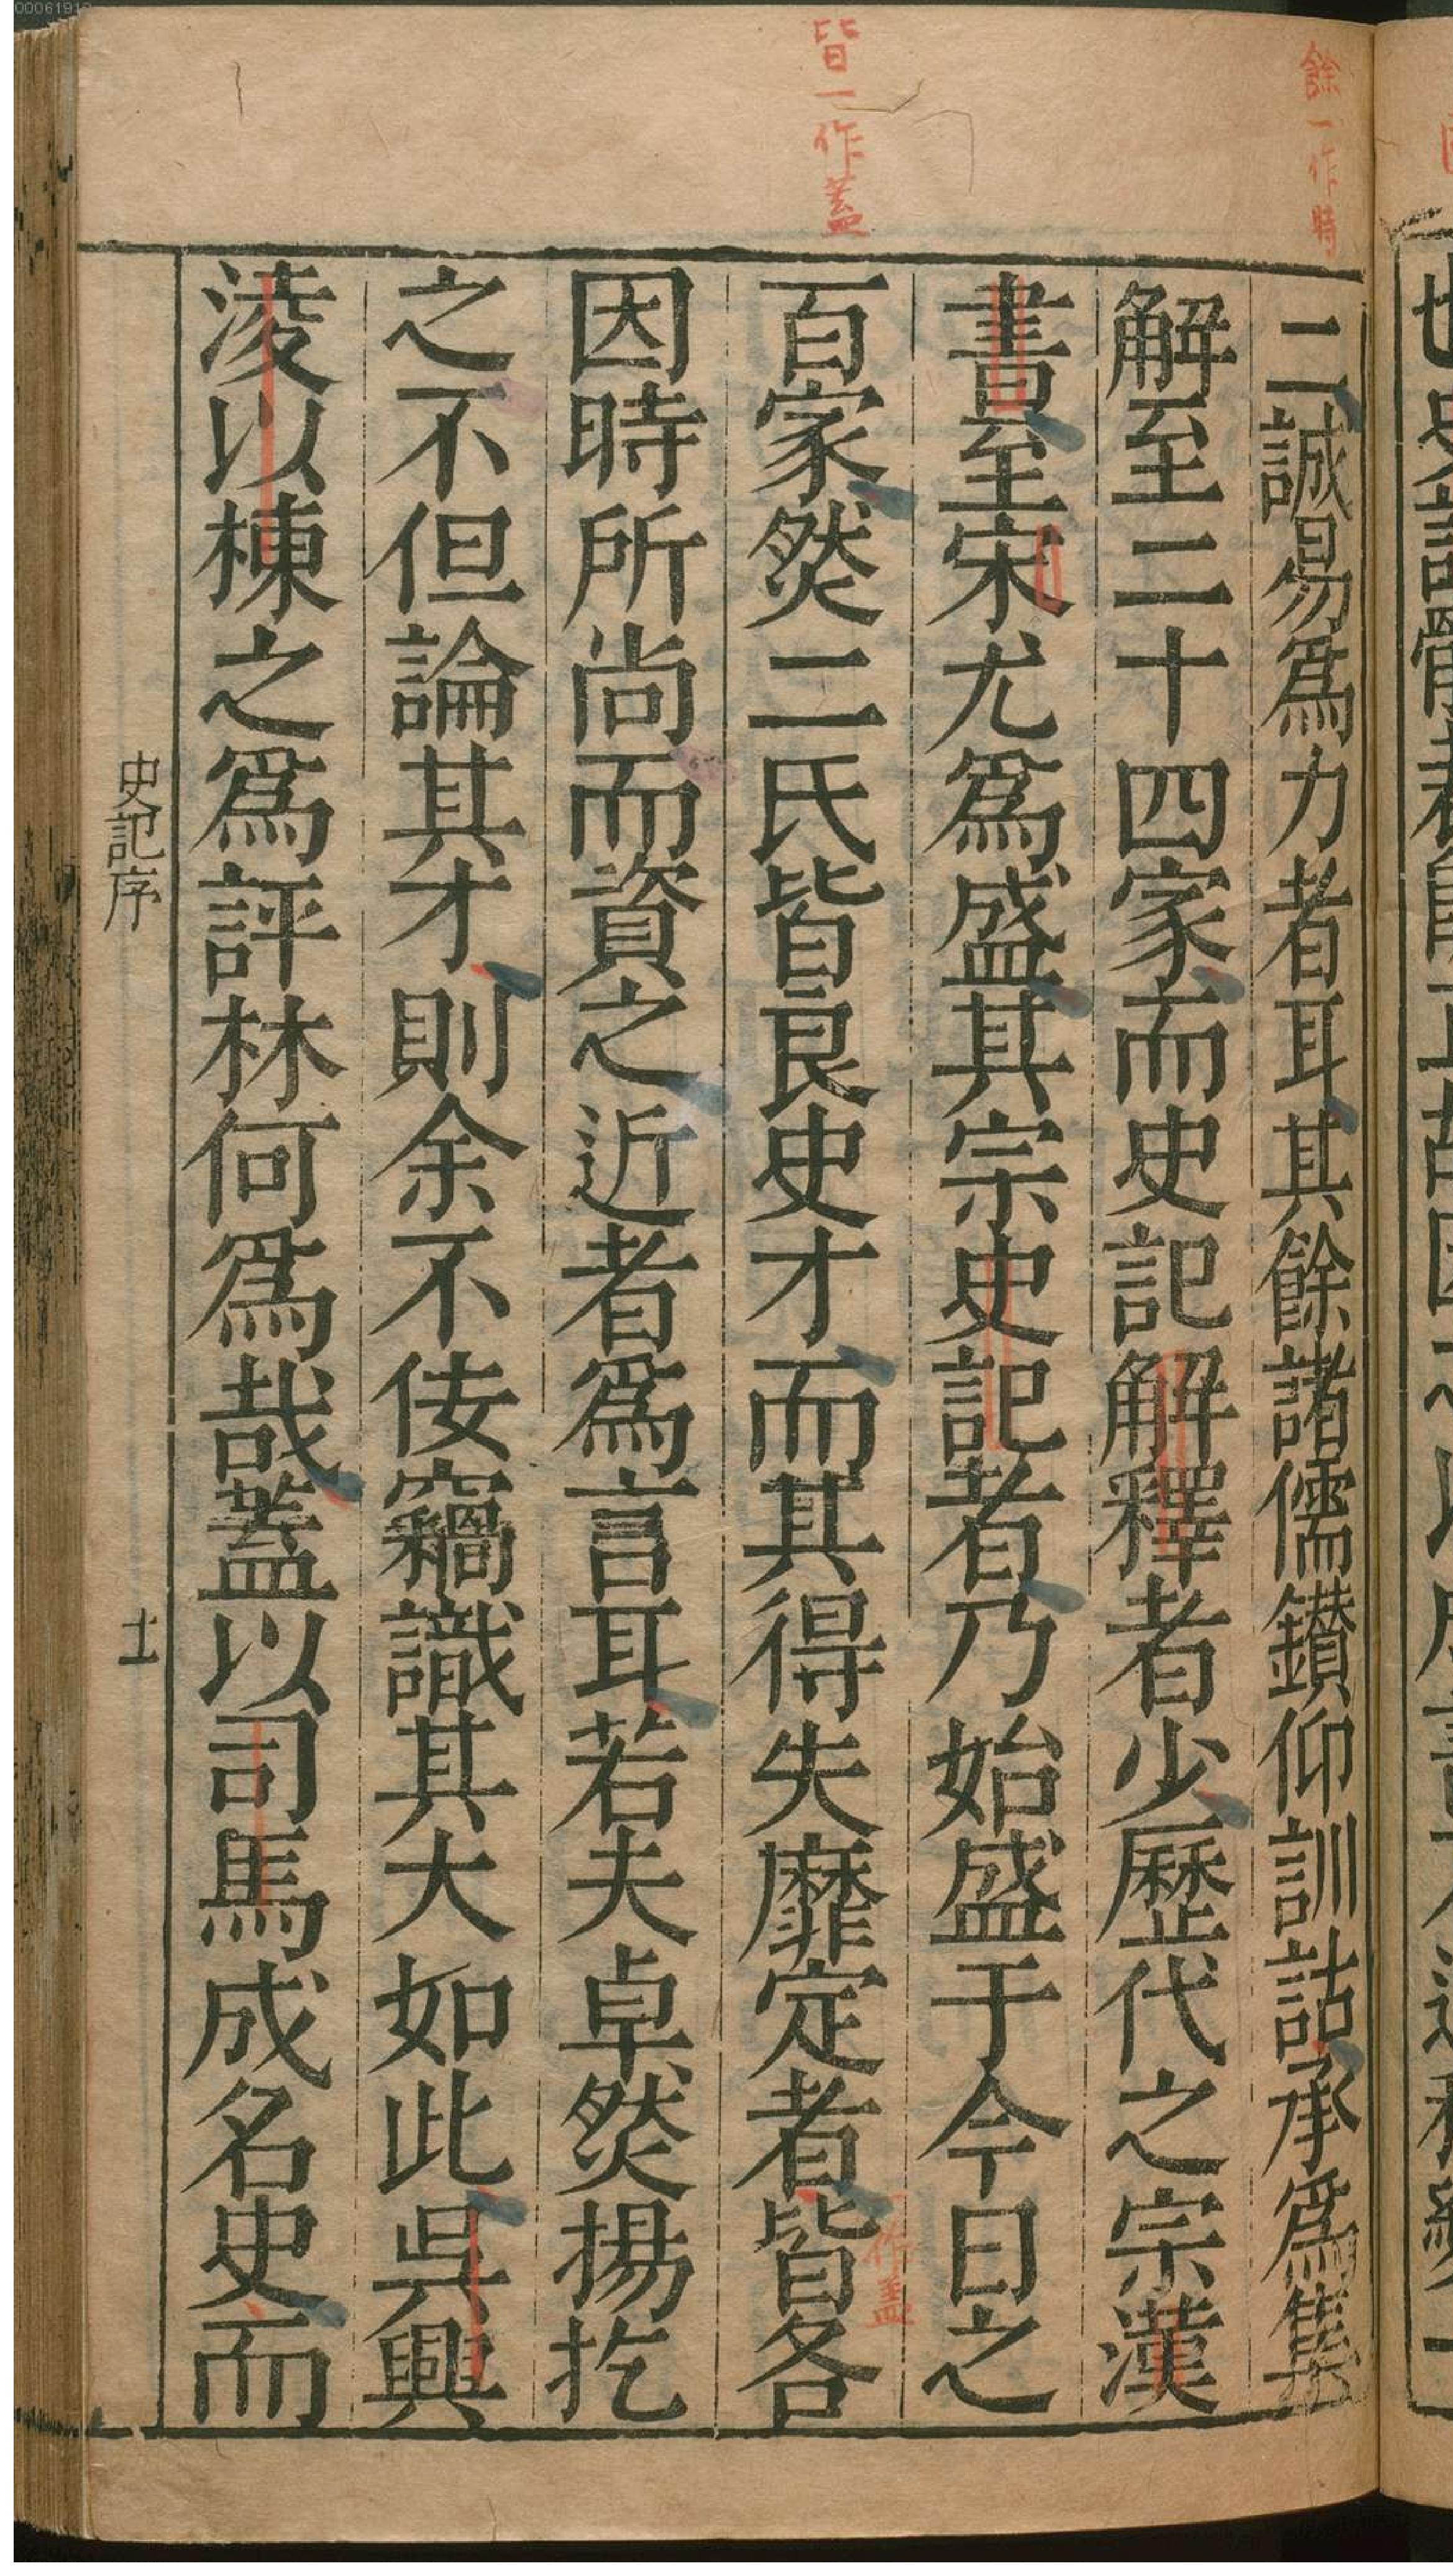 餘一作時
皆一作蓋
二誠易爲力者耳其餘諸儒鑚仰訓詁承爲集
解至二十四家而史記解釋者少歷代之宗漢
書至宋尤爲盛其宗史記者乃始盛于今日之
百家然二氏皆良史才而其得失靡定者皆各
一作蓋
因時所尚而資之近者爲言耳若夫卓然揚扢
之不但論其才則余不佞竊識其大如此吳興
淩以棟之爲評林何爲哉蓋以司馬成名史而
史記序
十一
00061919